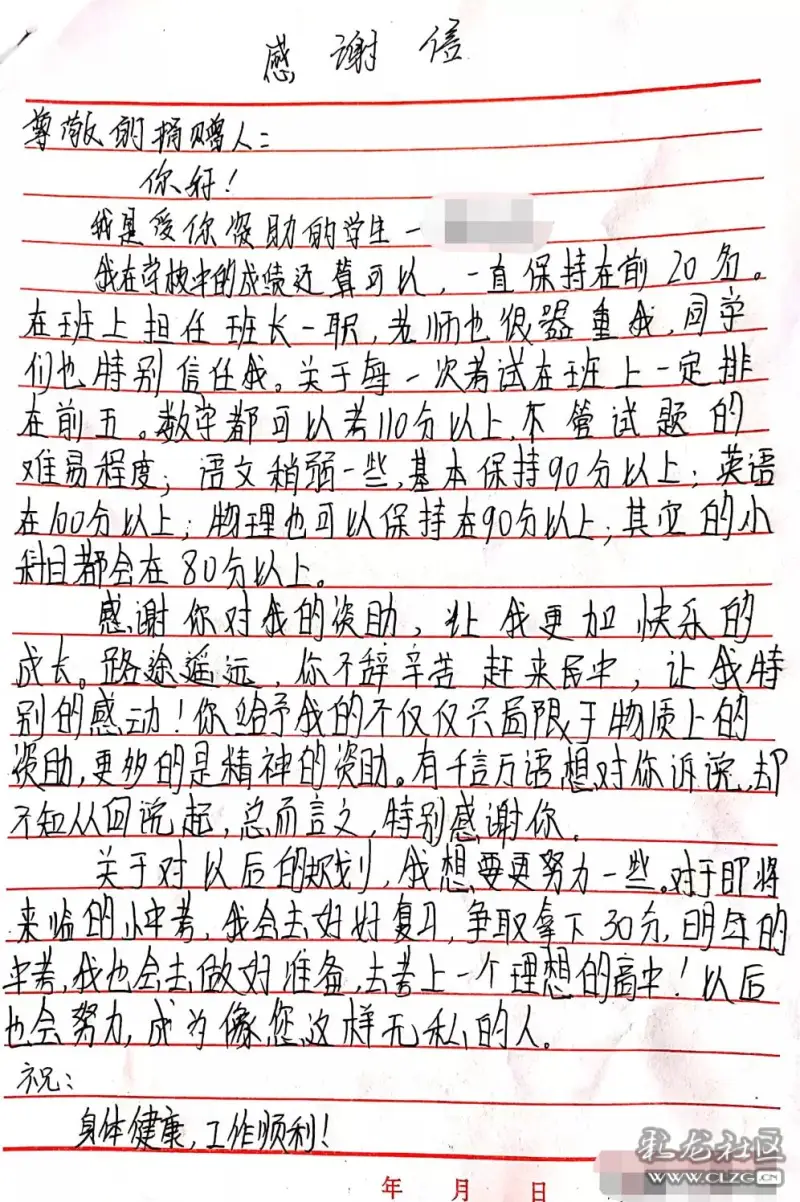 感谢信
尊敬的捐赠人：
你好！
我是受你资助的学生-
我在学校中的成绩还算可以，一直保持在前20名。
在班上担任班长一职，老师也很器重我，同学
们也特别信任我。关于每一次考试在班上一定排
在前五。数学都可以考110分以上，不管试题的
难易程度；语文稍弱一些，基本保持90分以上；英语
在100分以上；物理也可以保持在90分以上；其它的小
科目都会在80分以上。
感谢你对我的资助，让我更加快乐的
成长。路途遥远，你不辞辛苦赶来民中，让我特
别的感动！你给予我的不仅仅只局限于物质上的
资助，更多的是精神的资助。有千言万语想对你诉说，却
不知从何说起，总而言之，特别感谢你。
关于对以后的规划，我想要更努力一些。对于即将
来临的小中考，我会去好好复习，争取拿下30分，明年的
中考，我也会去做好准备，去考上一个理想的高中！以后
也会努力，成为像您这样无私的人。
祝：
身体健康，工作顺利！
年 月 日
彩龙社区
WWW.CLZG.CN